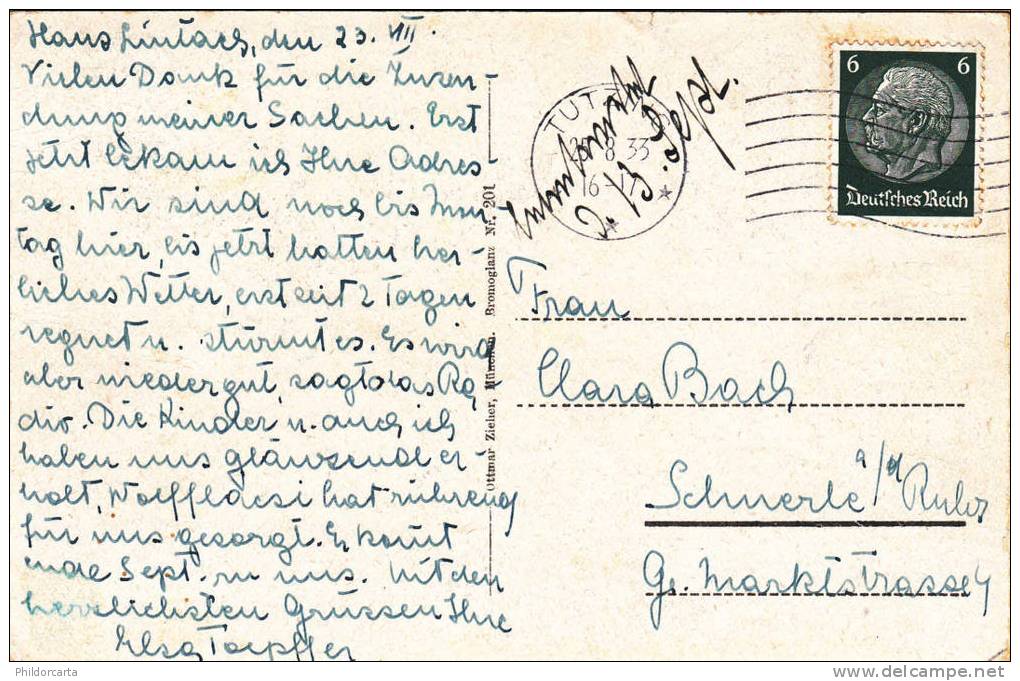 Haus Lintach, den 23. VIII.
Vielen Dank für die Zusen-
dung meiner Sachen. Erst
jetzt bekam ich Ihre Adres-
se. Wir sind noch bis Mon
tag hier, bis jetzt hatten her-
liches Wetter, erst seit 2 Tagen
regnet u. stürmt es. Es wird
aber wieder gut, sagt das Ra
dio. Die Kinder u. auch ich
haben uns glänzend er-
holt, hat rührend
für uns gesorgt. Er komt
ende Sept. zu uns. Mit den
herzlichsten Grüssen Ihre
Elsa Toepffer
Ottmar Zieher, München. Bromoglanz Nr. 201
TUTZ
8 33
16
Sept.
6 6
Deutsches Reich
Frau
Clara Bach
Schwerte a/d Ruhr
Gr. Marktstrasse 4
Phildorcarta
www.delcampe.net